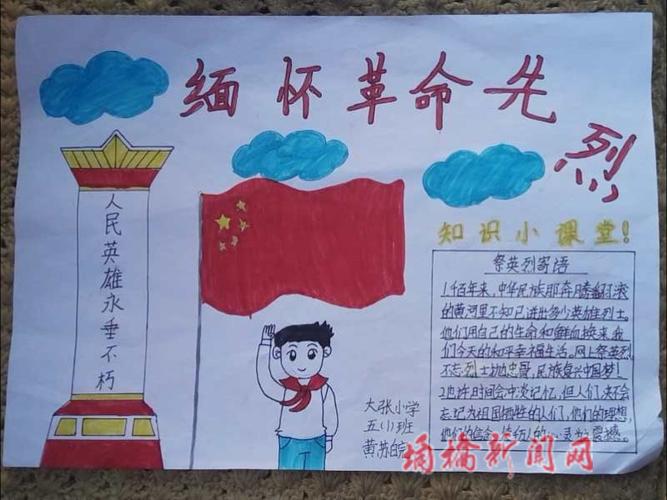 缅怀革命先烈
人民英雄永垂不朽
知识小课堂!
祭英烈寄语
1百年来,中华民族那奔腾翻滚
的黄河里不知已涌出多少英雄烈士。
他们用自己的生命和鲜血换来我
们今天的和平幸福生活。网上祭英烈
不忘烈士
民族复兴中国梦!
2也许时间会冲淡记忆,但人们决不会
忘记为祖国牺牲的人们,他们的理想,
他们的信念
震撼。
大张小学
五(1)班
黄苏皖
埇桥新闻网